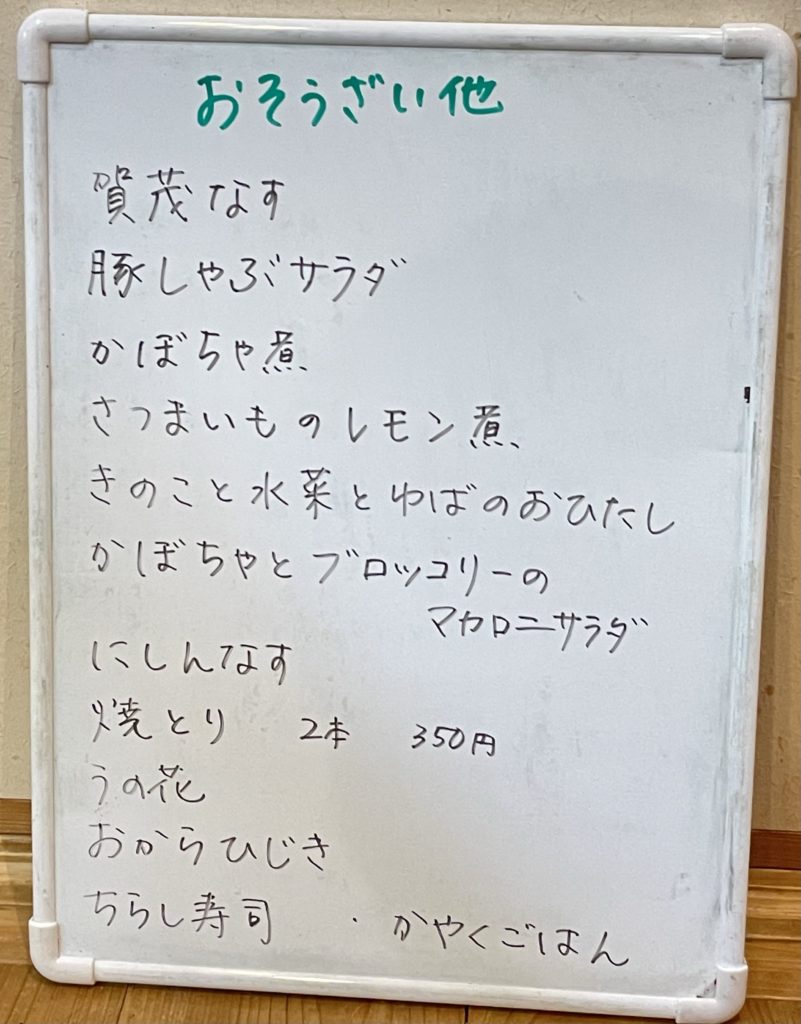 おそうざい他
賀茂なす
豚しゃぶサラダ
かぼちゃ煮
さつまいものレモン煮
きのこと水菜とゆばのおひたし
かぼちゃとブロッコリーの
マカロニサラダ
にしんなす
焼とり 2本 350円
うの花
おからひじき
ちらし寿司 ・かやくごはん